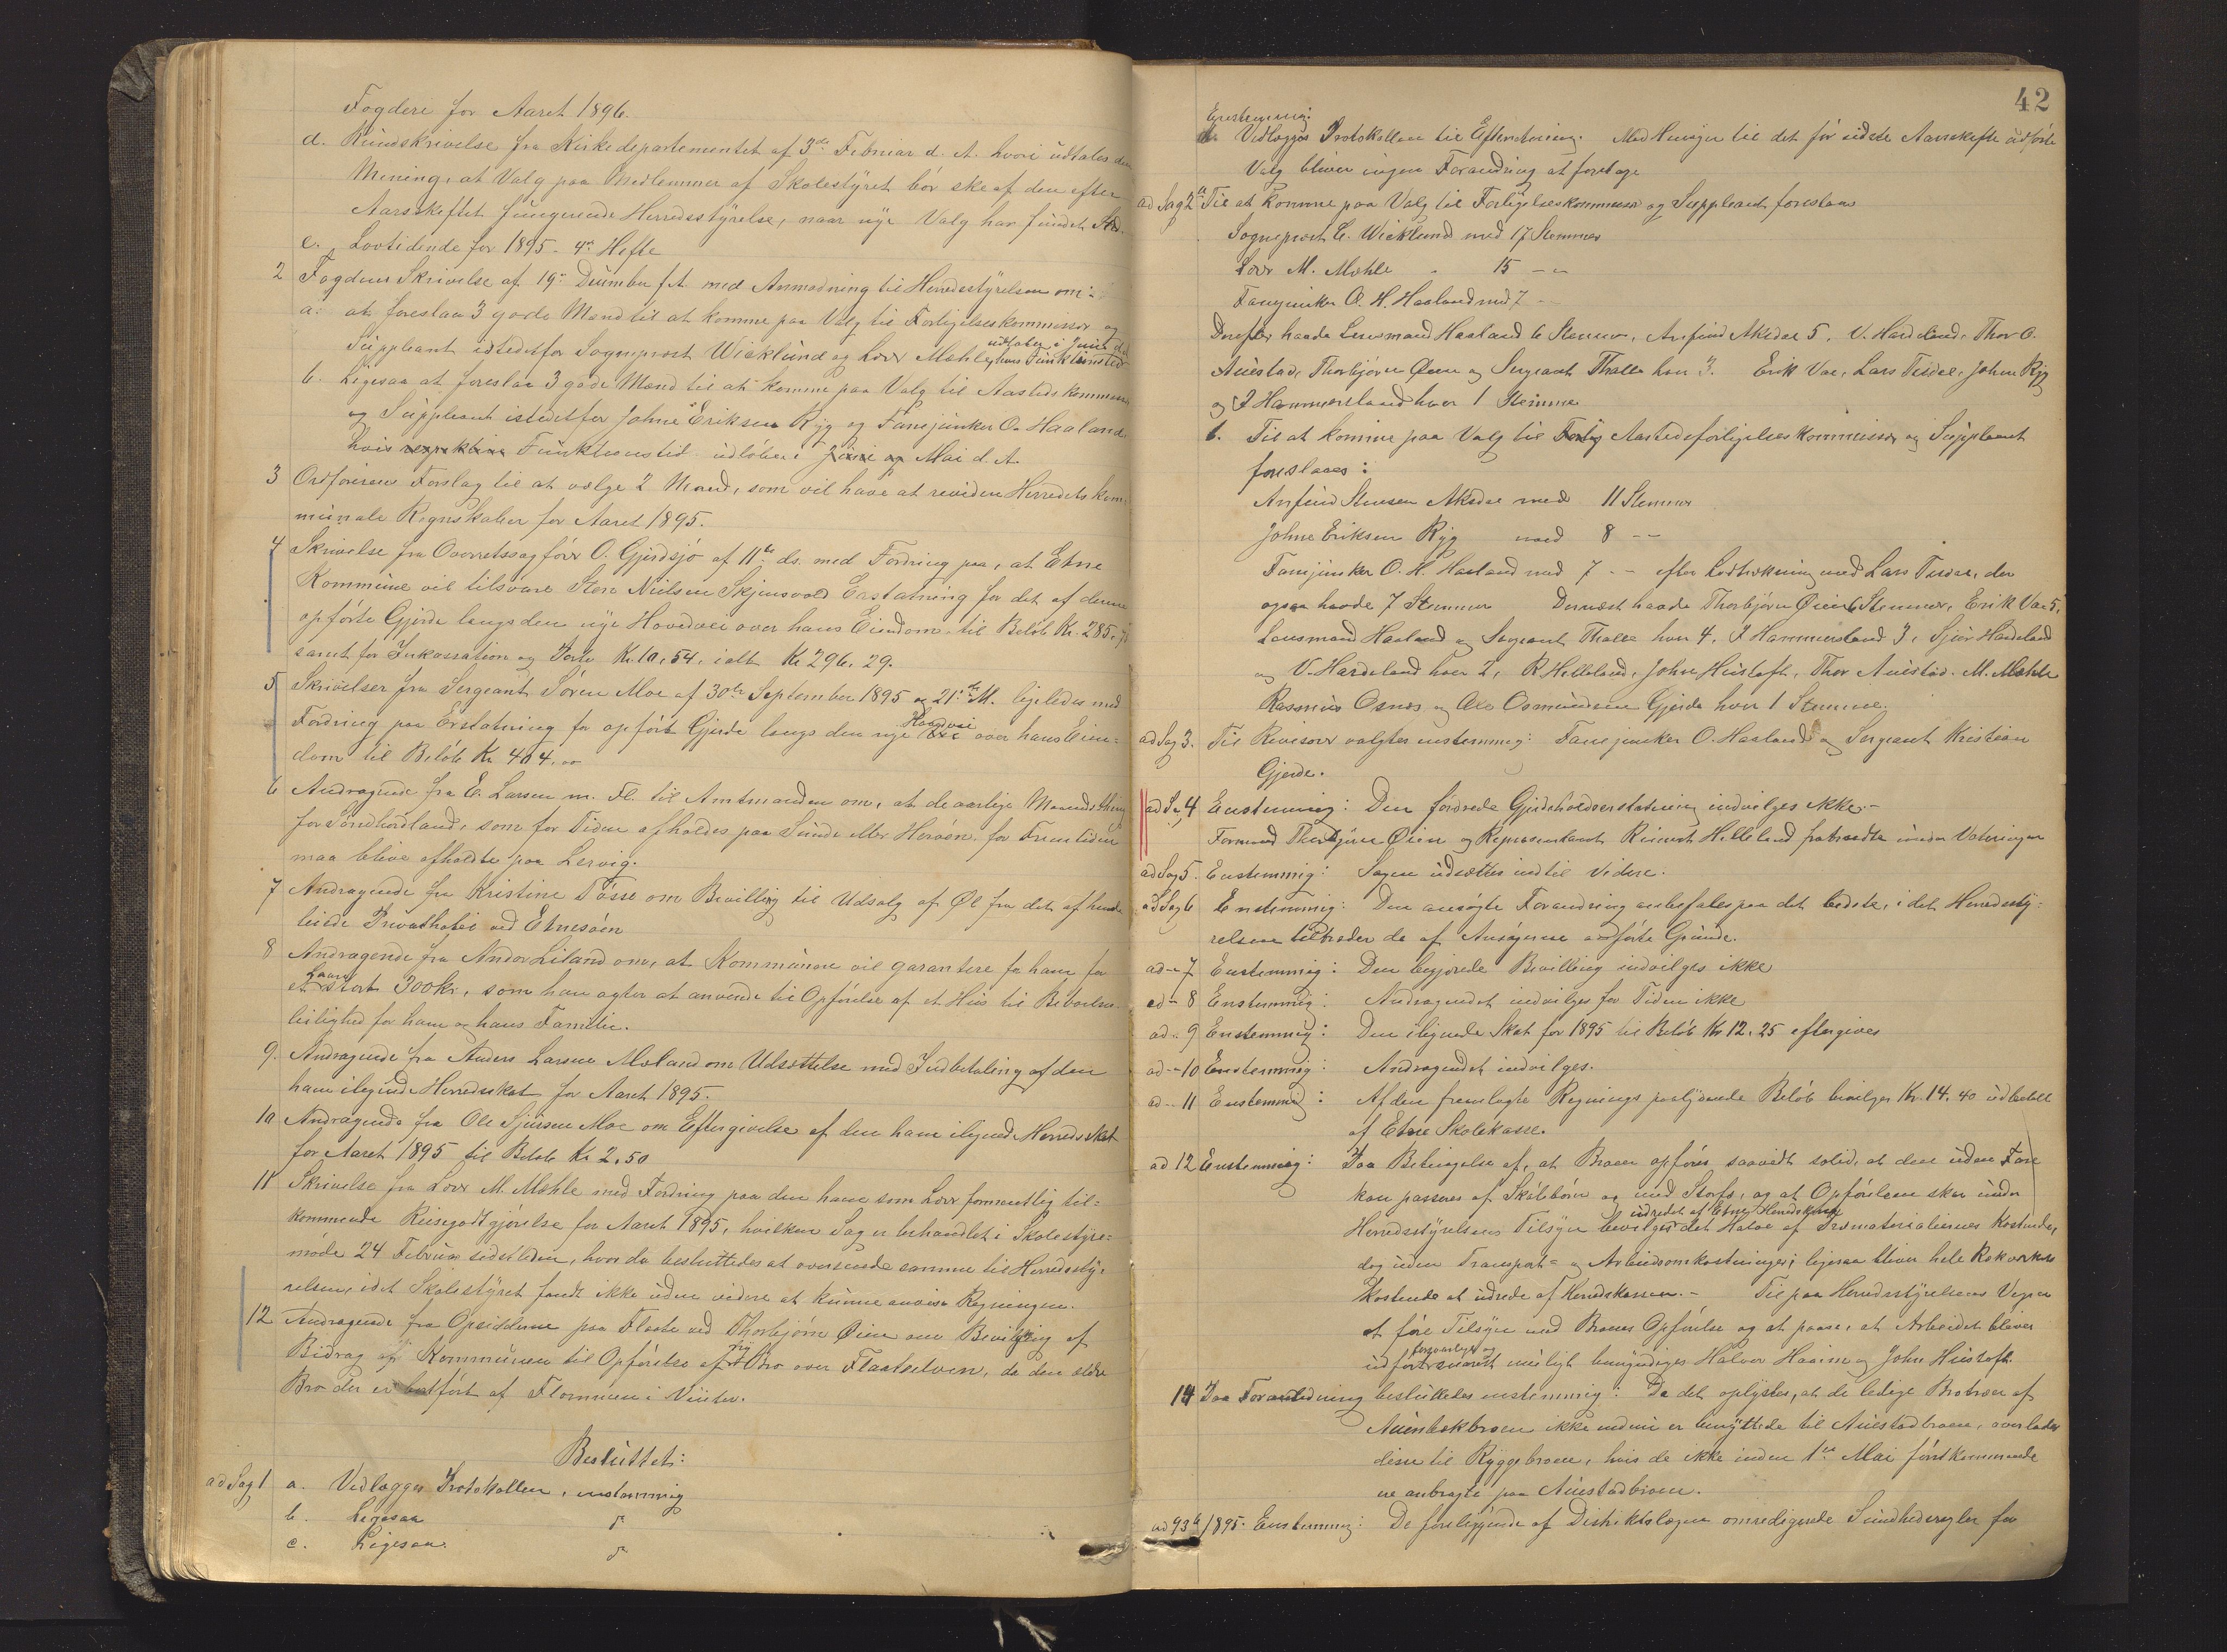 Fogderi for Aaret 1896.
d. Rundskrivelse fra Kirkedepartementet af 3die Februar d. A. hvori udtales den
Mening, at Valg paa Medlemmer af Skolestyret bör ske af den efter
Aarsskiftet fungerende Herredsstyrelse, naar nye Valg har fundet Sted.
e. Lovtidende for 1895 - 4de Hefte
2 Fogdens Skrivelse af 19de Decumber f. A. med Anmodning til Herredsstyrelsen om:
a: at foreslaa 3 gode Mænd til at komme paa Valg til Forligelseskommissær og
Suppleant istedetfor Sogneprest Wicklund og Lærer Mæhle, hvis Funktionstid
udløber i Juni d. A.
b. Ligesaa at foreslaa 3 gode Mænd til at komme paa Valg til Aastedskommissær
og Suppleant istedetfor Johne Eriksen Ryg og Fanejunker O. Haaland
hvis respektive Funktionstid udlöber i Juni og Mai d. A.
3 Ordförerens Forslag til at vælge 2 Mænd, som vil have at revidere Herredets kom-
munale Regnskaber for Aaret 1895.
4 Skrivelse fra Overretssagförer O. Gjerdsjö af 11te ds. med Fordring paa, at Etne
Kommune vil tilsvare Sten Nielsen Skjensvold Erstatning for det af denne
opförte Gjerde langs den nye Hovedvei over hans Eiendom til Belöb Kr. 285,75
samt for Inkassation og Porto Kr. 10,54, ialt Kr 296,29.
5 Skrivelser fra Sergeant Sören Moe af 30te September 1895 og 21de M. ligeledes med
Fordring paa Erstatning for opfört Gjerde langs den nye Hovedvei over hans Eien-
dom til Belöb Kr 404,00
6 Andragende fra E. Larsen m. Fl. til Amtmanden om, at de aarlige Maanedsthing
for Söndhordland, som for Tiden afholdes paa Sunde eller Heröen, for Fremtiden
maa blive afholdte paa Lervig.
7 Andragende fra Kristine Tösse om Bevilling til Udsalg af Øl fra det af hende
leiede Privathotel ved Etnesöen
8 Andragende fra Andor Liland om, at Kommunen vil garantere for ham for
et Laan stort 300 kr., som han agter at anvende til Opförelse af et Hus til Beboelses-
leilighed for ham og hans Familie.
9. Andragende fra Anders Larsen Moland om Udsættelse med Indbetaling af den
ham ilignede Herredsskat for Aaret 1895.
10 Andragende fra Ole Sjursen Moe om Eftergivelse af den ham ilignede Herredsskat
for Aaret 1895 til Belöb Kr 2,50
11 Skrivelse fra Lærer M. Mæhle med Fordring paa den ham som Lærer formentlig til-
kommende Reisegodtgjörelse for Aaret 1895, hvilken Sag er behandlet i Skolestyre-
möde 24 Februar sidstleden, hvor da besluttedes at oversende samme til Herredssty-
relsen, idet Skolestyret fandt ikke uden videre at kunne anvise Regningen.
12 Andragende fra Opsidderne paa Flaate ved Thorbjörn Øien om Bevilgning af
Bidrag af Kommunen til Opförelse af ny Bro over Flaateelven, da den ældre
Bro der er bortfört af Flommen i Vinter.
Besluttet:
ad Sag 1 a. Vedlægges Protokollen, enstemmig
b. Ligesaa do
c. Ligesaa. do
42
Enstemmig:
d. Vedlægges Protokollen til Efterretning. Med Hensyn til det för sidste Aarsskifte udförte
Valg bliver ingen Forandring at foretage
ad Sag 2 a Til at komme paa Valg til Forligelseskommissær og Suppleant foreslaaes
Sogneprest C. Wicklund med 17 Stemmer
Lærer M. Mæhle - 15 - -
Fanejunker O. H. Haaland med 7 - -
Derefter havde Lensmand Haaland 6 Stemmer, Anfind Aksdal 5, V. Hardeland, Thor O.
Auestad, Thorbjörn Øien og Sergeant Thalle hver 3. Erik Vae, Lars Tesdal, Johne Ryg
og J Hammersland hver 1 Stemme
b. Til at komme paa Valg til Aastedsforligelseskommissær og Suppleant
foreslaaes:
Anfind Stensen Aksdal med 11 Stemmer
Johne Eriksen Ryg med 8 - -
Fanejunker O. H. Haaland med 7 - - efter Lodtrækning med Lars Tesdal, der
ogsaa havde 7 Stemmer Dernæst havde Thorbjörn Øien 6 Stemmer, Erik Vae 5,
Lensmand Haaland og Sergeant Thalle hver 4, J Hammersland 3, Sjur Hardeland
og V. Hardeland hver 2, R Helleland, John Hustoft, Thor Auestad, M. Mæhle
Rasmus Osnes og Ole Osmundsen Gjerde hver 1 Stemme.
ad Sag 3. Til Revisorer valgtes enstemmig: Fanejunker O. Haaland og Sergeant Kristian
Gjerde.
ad Sag 4 Enstemmig: Den fordrede Gjerdeholdserstatning indvilges ikke. -
Formand Thorbjörn Øien og Repræsentant Reinert Helleland fratraadte under Voteringen
ad Sag 5. Enstemmig: Sagen udsættes indtil videre.
ad Sag 6 Enstemmig: Den ansögte Forandring anbefales paa det bedste, idet Herredssty-
relsen tiltræder de af Ansögerne anförte Grunde.
ad - 7 Enstemmig: Den begjærede Bevilling indvilges ikke
ad - 8 Enstemmig: Andragendet indvilges for Tiden ikke
ad - 9 Enstemmig: Den ilignede Skat for 1895 til Belöb Kr 12,25 eftergives
ad - 10 Enstemmig: Andragendet indvilges.
ad - 11 Enstemmig: Af den fremlagte Regnings paalydende Belöb bevilges Kr. 14,40 udbetalt
af Etne Skolekasse.
ad 12 Enstemmig: Paa Betingelse af, at Broen opföres saavidt solid, at den uden Fare
kan passeres af Skolebörn og med Storfæ, og at Opförelsen sker under
Herredsstyrelsens Tilsyn bevilges udredet af Etne Herredskasse det Halve af Træmaterialiernes Kostende,
dog uden Transport- og Arbeidsomkostninger; ligesaa bliver hele Rækværkets
Kostende at udrede af Herredskassen. - Til paa Herredsstyrelsens Vegne
at före Tilsyn med Broens Opförelse og at paase, at Arbeidet bliver
udfört forsvarligt og snarest muligt bemyndiges Halvor Haaim og John Hustoft.
14 Paa Foranledning besluttedes enstemmig: Da det oplystes, at de ledige Brotræer af
Auenbækbroen ikke endnu er benyttede til Auestadbroen, overlades
disse til Ryggebroen, hvis de ikke inden 1ste Mai förstkommende
er anbragte paa Auestadbroen.
ad 93 b/1895. Enstemmig: De foreliggende af Distriktslægen omredigerede Sundhedsregler for